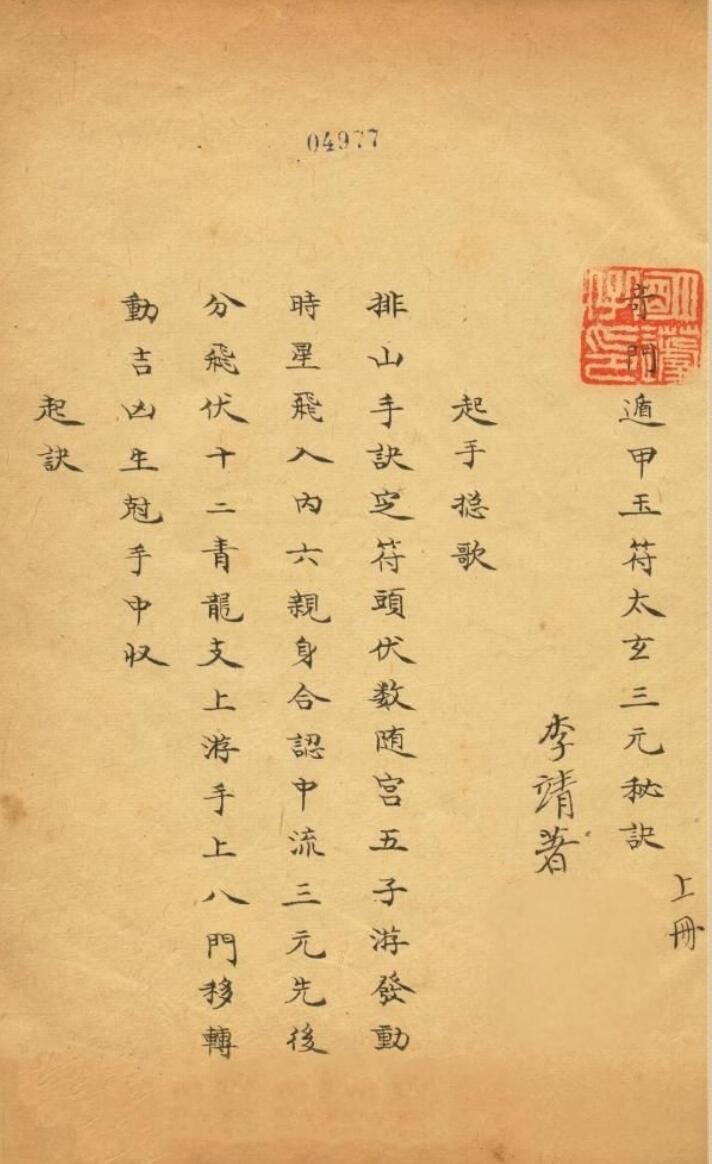 04977
奇門遁甲玉符太玄三元秘訣
上冊
李靖著
起手捴歌
排山手訣定符頭伏数随宮五子游發動
時星飛入內六親身合認中流三元先後
分飛伏十二青龍支上游手上八門移轉
動吉凶生尅手中収
起訣